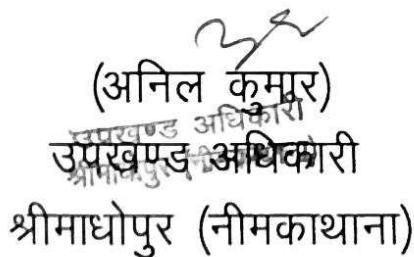 (अनिल कुमार)
उपखण्ड अधिकारी
उपखण्ड अधिकारी
श्रीमाधोपुर (नीमकाथाना)